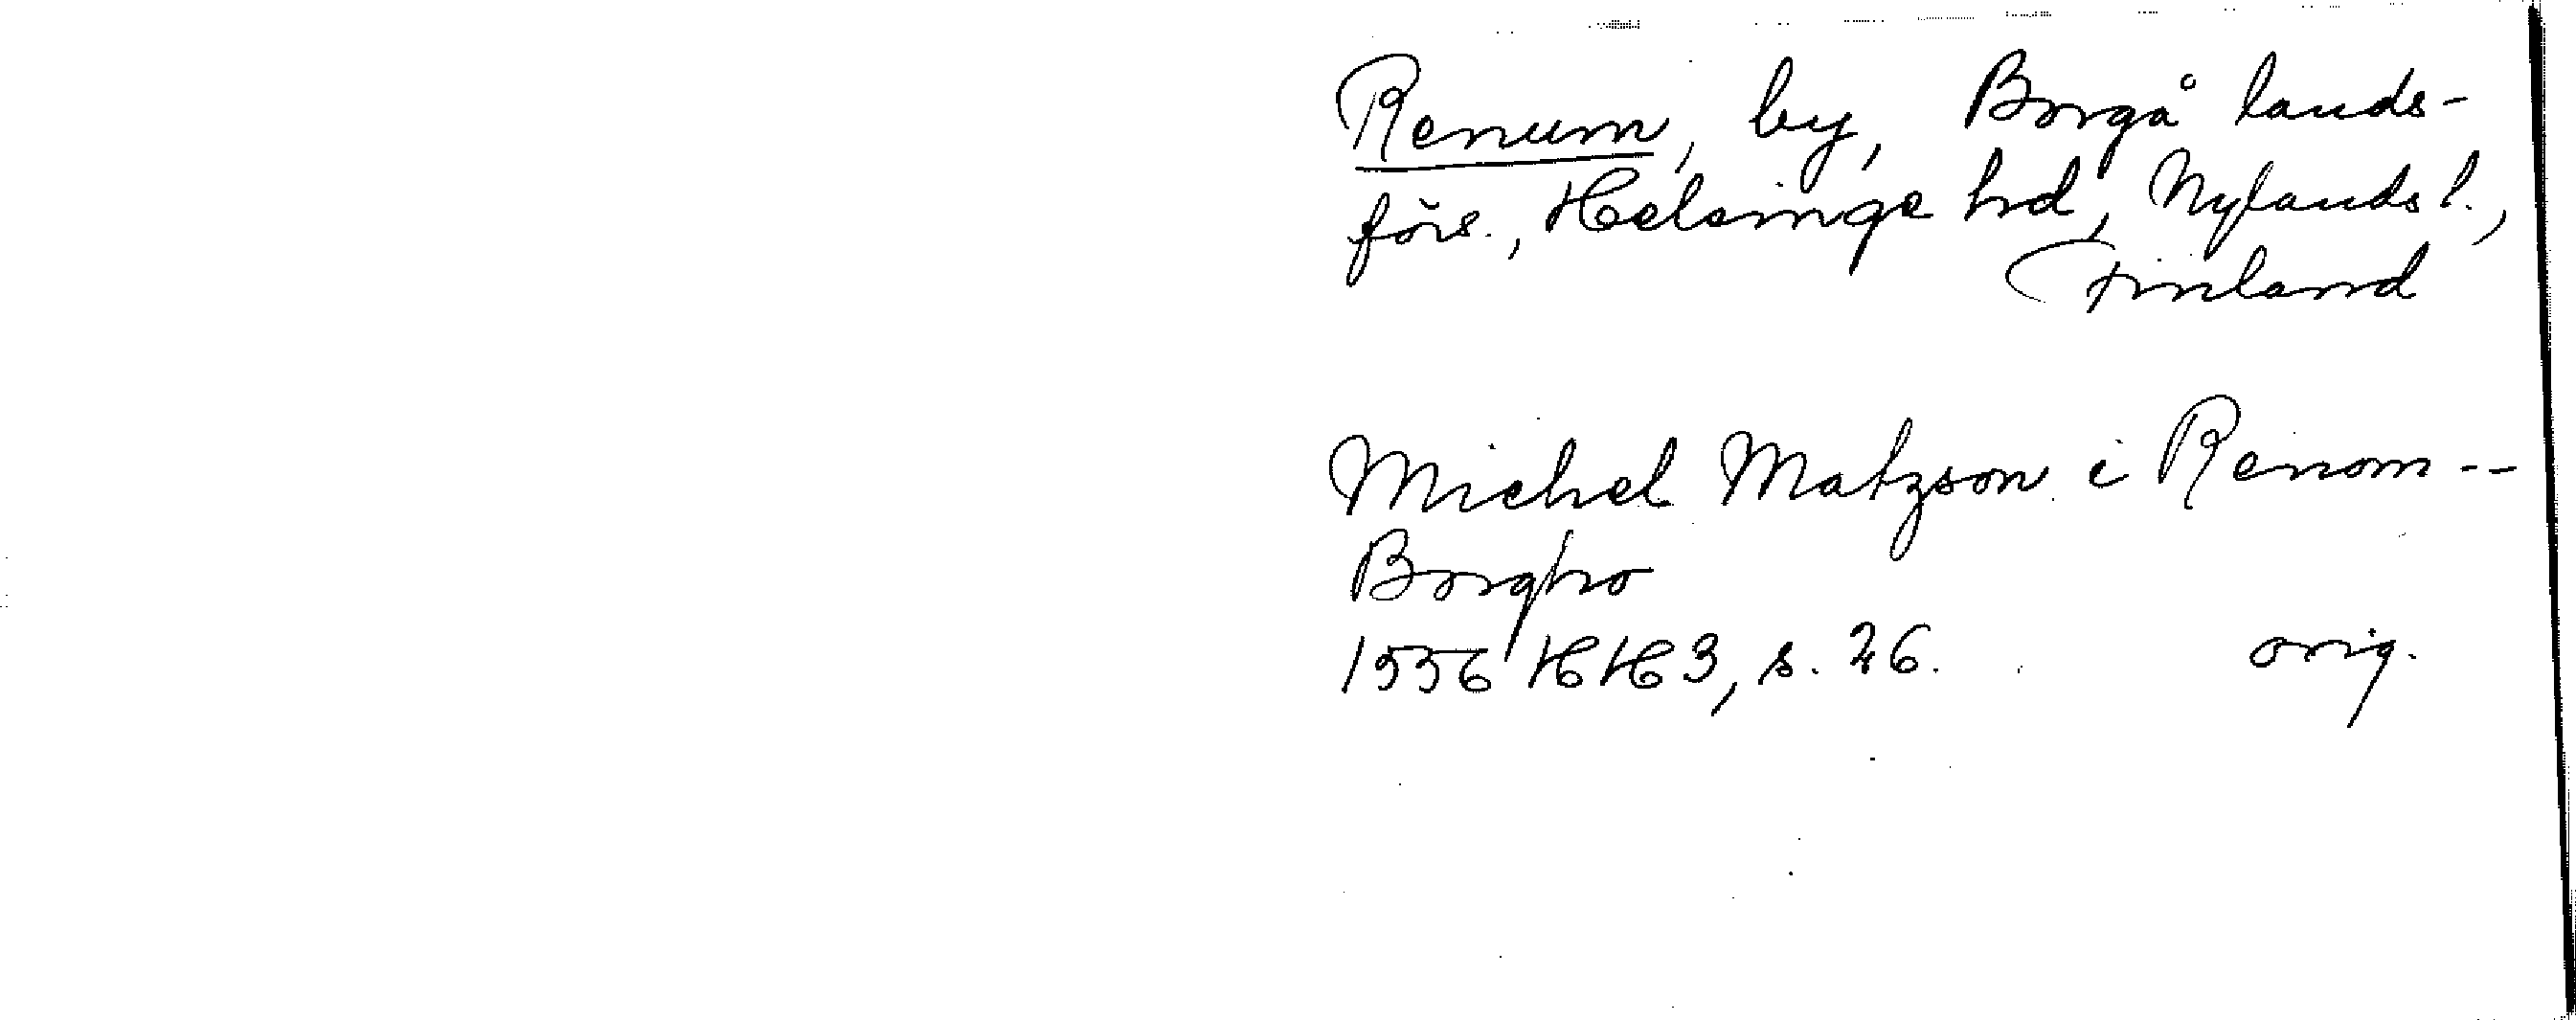 Renum, by, Borgå lands-
förs., Helsinge hd, Nylands l.,
Finland
Michel Matzson i Renom --
Borgho
1556 HH3, s. 26. orig.